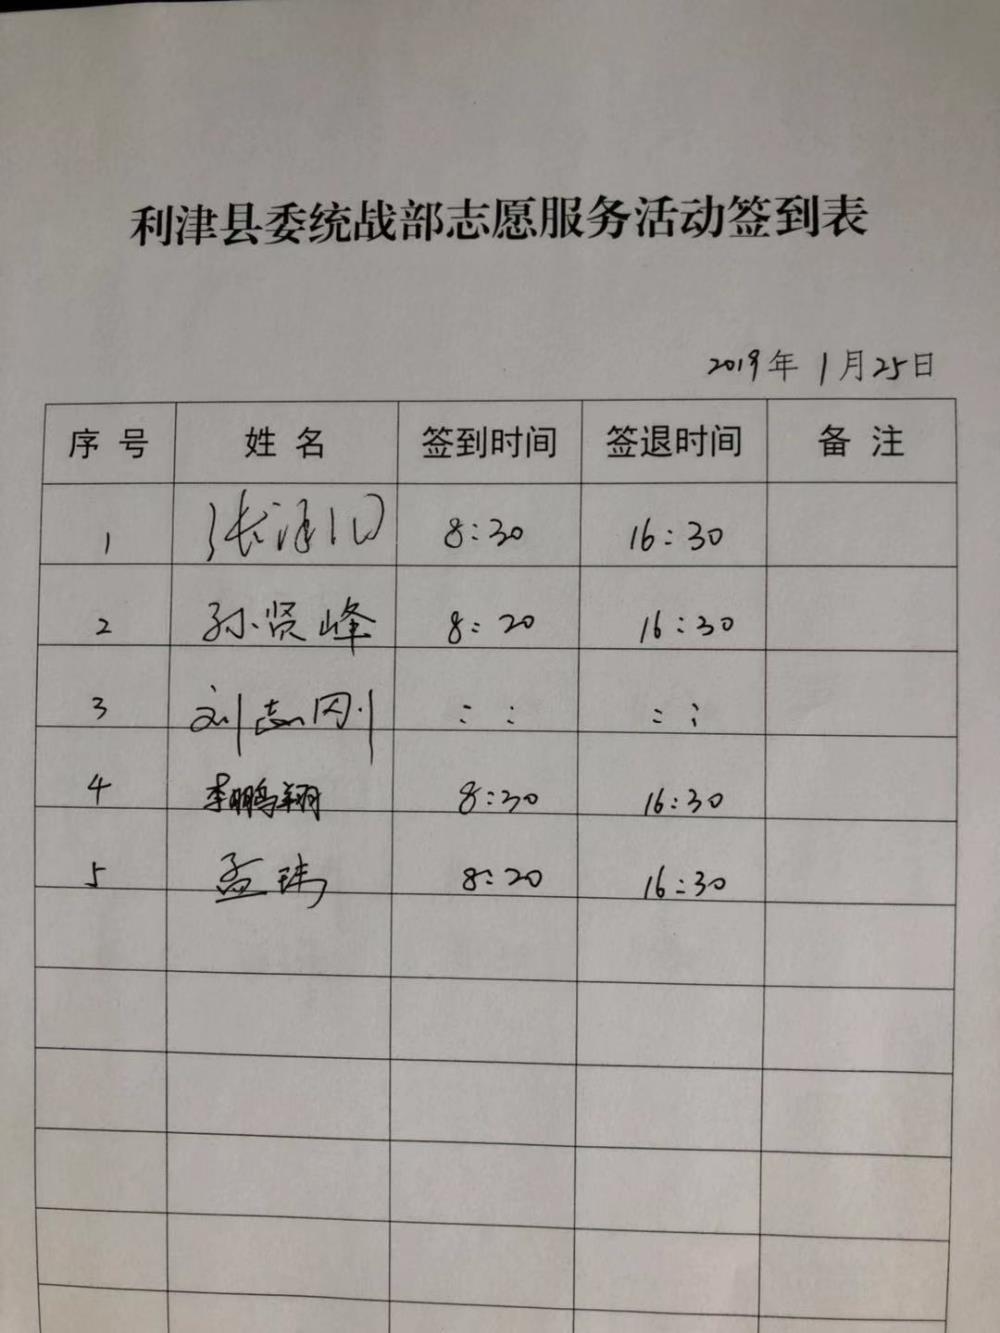 利津县委统战部志愿服务活动签到表
2019年1月25日
序号 姓名 签到时间 签退时间 备注
1 张 8:30 16:30
2 孙贤峰 8:20 16:30
3 刘志刚 : : : :
4 李鹏翔 8:30 16:30
5 孟玮 8:20 16:30